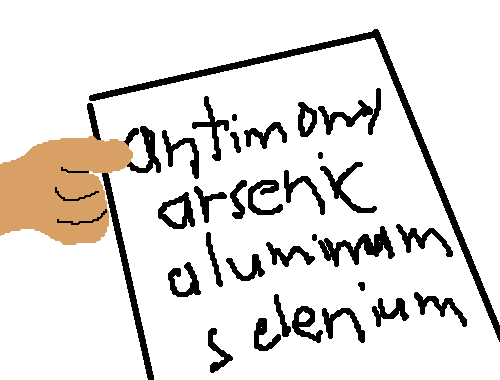 antimony
arsenic
aluminum
selenium